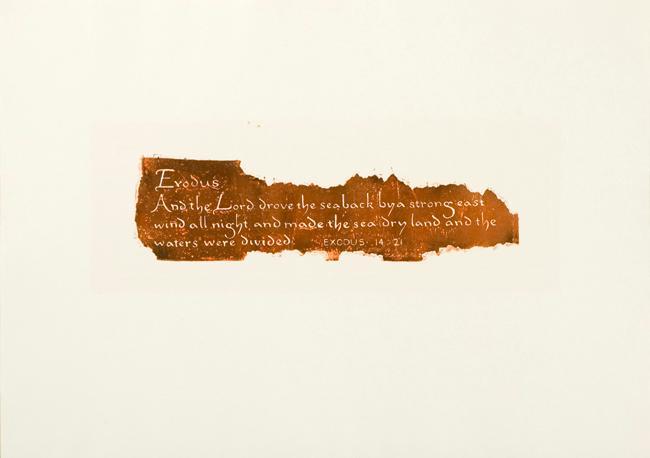 Exodus
And the Lord drove the sea back by a strong east
wind all night, and made the sea dry land and the
waters were divided. EXODUS · 14 : 21